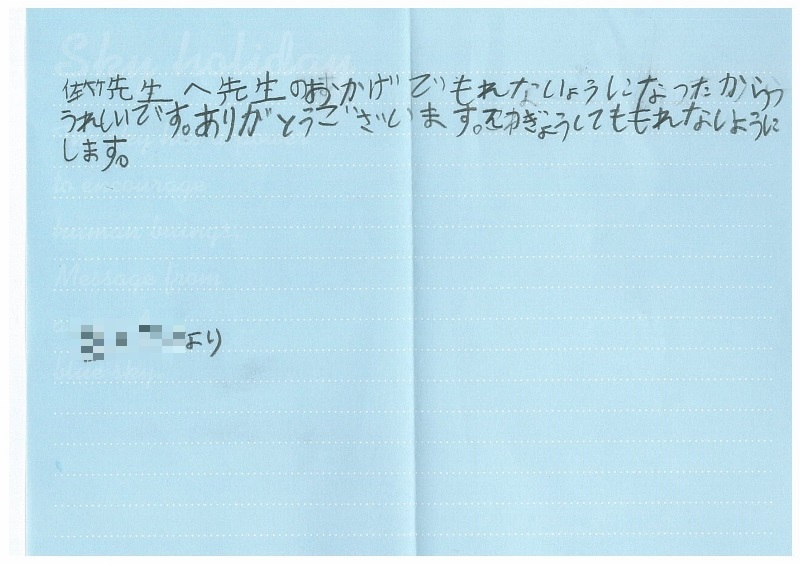 Sky holiday
佐竹先生へ先生のおかげでもれないようになったから
うれしいです。ありがとうございます。そつぎょうしてももれないように
します。
to encourage
human being
Message from
より